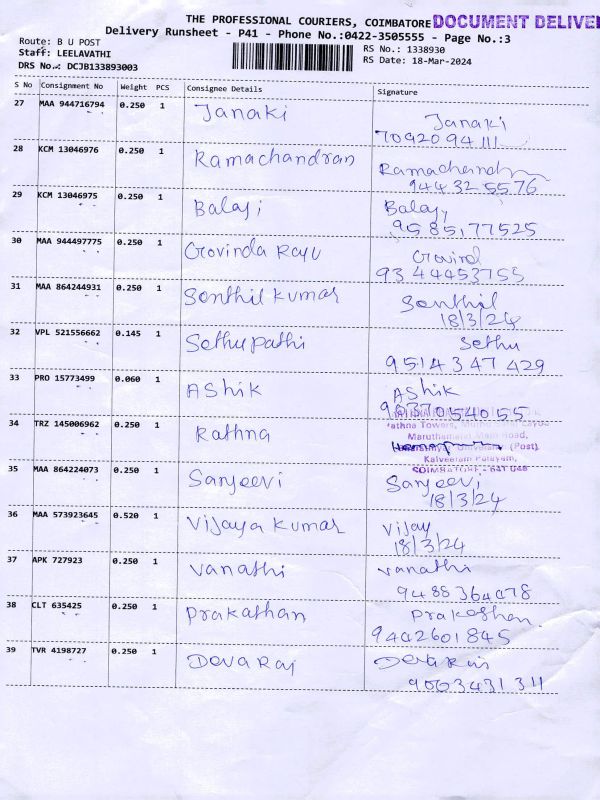 THE PROFESSIONAL COURIERS, COIMBATORE DOCUMENT DELIVE
Delivery Runsheet - P41 - Phone No.:0422-3505555 - Page No.:3
Route: B U POST
RS No.: 1338930
Staff: LEELAVATHI
RS Date: 18-Mar-2024
DRS No.: DCJB133893003
S No Consignment No Weight PCS Consignee Details Signature
27 MAA 944716794 0.250 1 Janaki Janaki
7092094111
28 KCM 13046976 0.250 1 Ramachandran Ramachandran
9443255576
29 KCM 13046975 0.250 1 Balaji Balaji
9585177525
30 MAA 944497775 0.250 1 Govinda Raju Govind
9344453755
31 MAA 864244931 0.250 1 Senthil kumar Senthil
18/3/24
32 VPL 521556662 0.145 1 Sethupathi Sethu
9514347429
33 PRO 15773499 0.060 1 AShik AShik
9037054055
34 TRZ 145006962 0.250 1 Rathna
Towers,
Maruthamalai Main Road,
(Post)
Kalveeram Palayam,
COIMBATORE - 641 046
35 MAA 864224073 0.250 1 Sanjeevi Sanjeevi
18/3/24
36 MAA 573923645 0.520 1 Vijaya kumar Vijay
18/3/24
37 APK 727923 0.250 1 vanathi vanathi
9488364078
38 CLT 635425 0.250 1 Prakathan Prakathan
9442601845
39 TVR 4198727 0.250 1 DevaRaj DevaRaj
9003431311